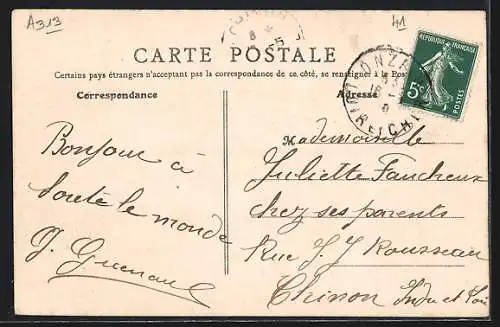 A313
41
CARTE POSTALE
Certains pays étrangers n'acceptant pas la correspondance de ce côté, se renseigner à la Pos
Correspondance
Adresse
REPUBLIQUE FRANÇAISE
5c
POSTES
ONZA
LOIR-ET-CHER
Bonjour à
toute le monde
Mademoiselle
Juliette Faucheux
chez ses parents
Rue J. J Rousseau
Chinon Indre et Loi